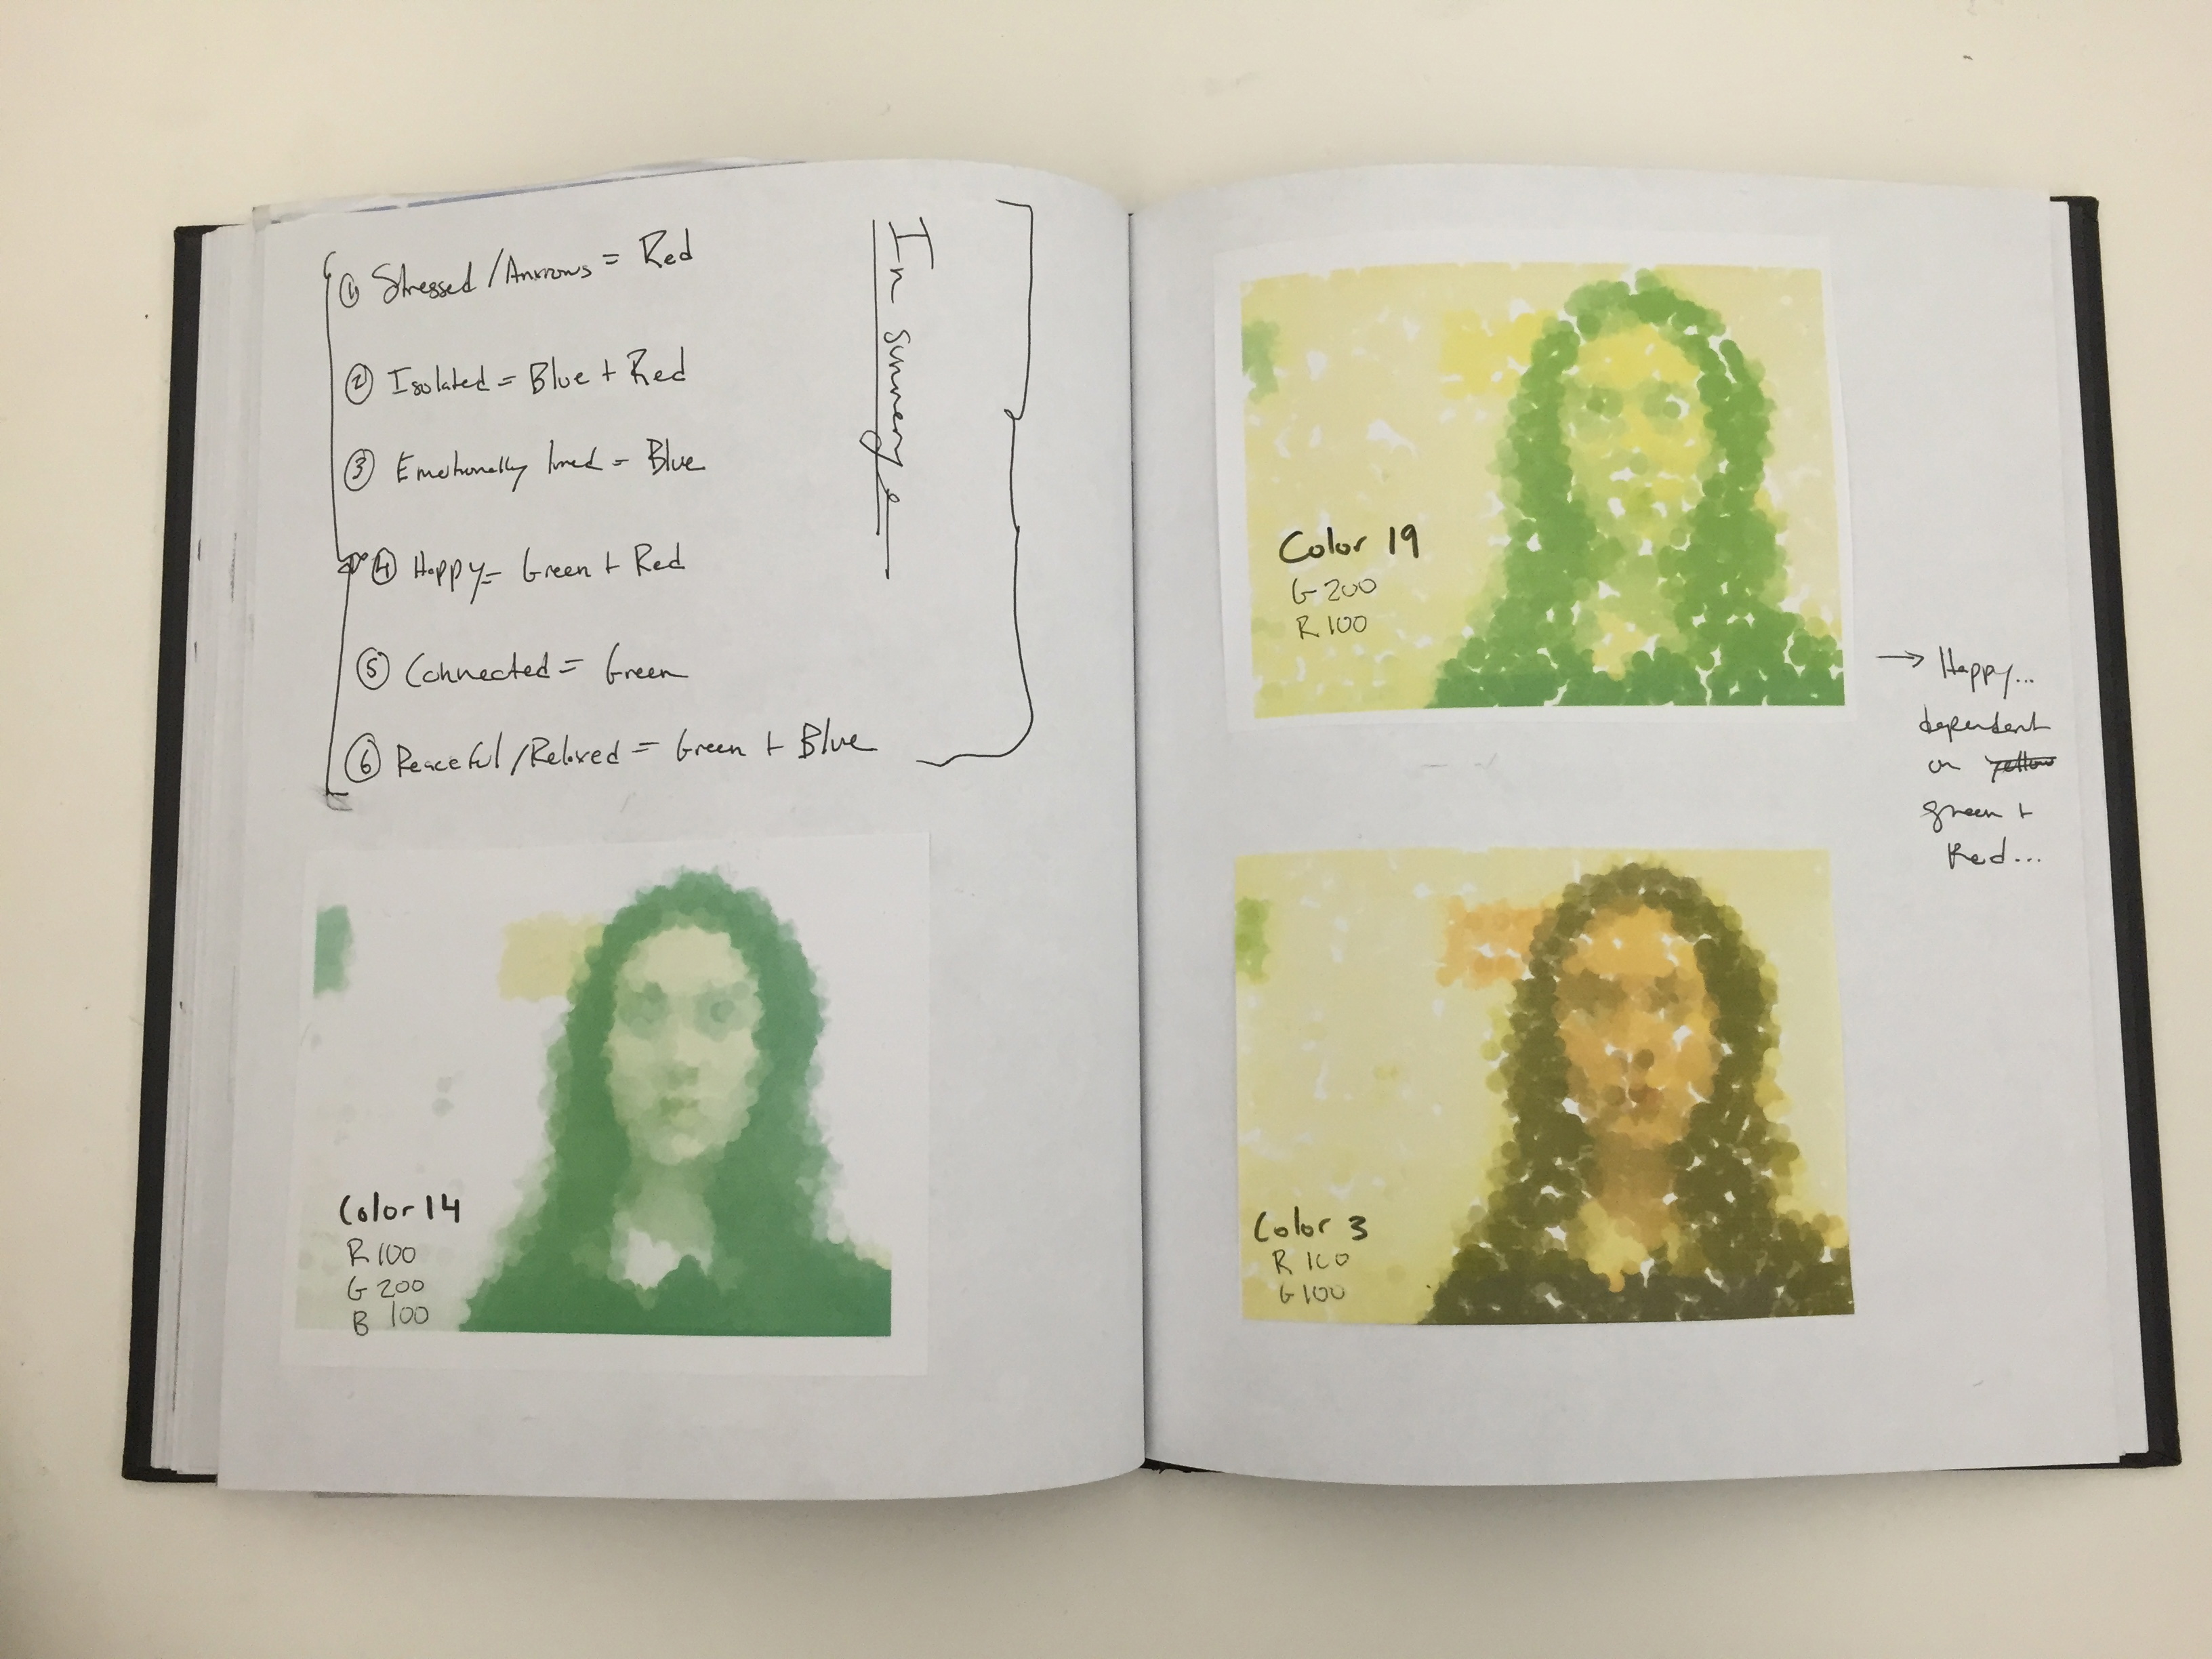 ① Stressed/Anxious = Red
② Isolated = Blue + Red
③ Emotionally = Blue
④ Happy = Green + Red
⑤ Connected = Green
⑥ Peaceful/Relaxed = Green + Blue
In Summery
Color 14
R 100
G 200
B 100
Color 19
G 200
R 100
→ Happy...
dependent
on yellow
green +
Red...
Color 3
R 100
G 100